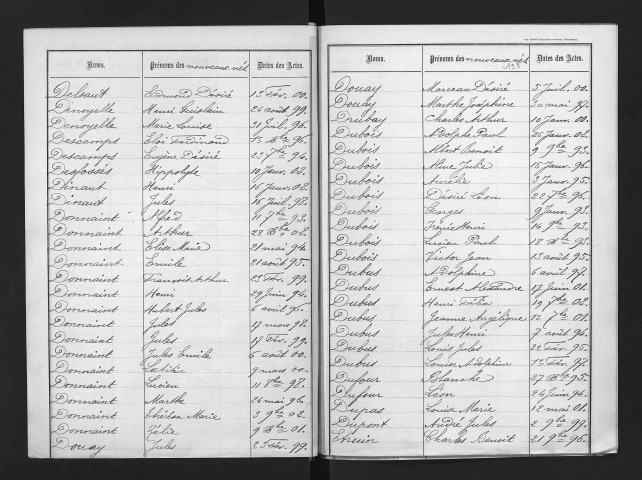 Noms. Prénoms des nouveaux nés. Dates des Actes.
Delsaut Edmond Désiré 13 Fév. 00.
Denoyelle Henri Guislain 24 août 99.
Denoyelle Marie Louise 31 Juil. 96.
Descamps Eloi Ferdinand 96.
Descamps Eugène Désiré 23 7bre 94.
Desfossés Hippolyte 10 Janv. 03.
Dinaut Henri 16 Janv. 02.
Dinaut Jules 16 Juil. 98.
Donnaint Alfred 11 7bre 93.
Donnaint Arthur 28 Xbre 02.
Donnaint Elise Marie 21 mai 94.
Donnaint Emile 21 août 95.
Donnaint François Arthur 23 Fév. 99.
Donnaint Henri 29 Juin 94.
Donnaint Hubert Jules 6 avril
Donnaint Jules 17 mars 98.
Donnaint Jules 17 Fév. 99.
Donnaint Jules Emile 6 août 00.
Donnaint Lætitia 9 mars 00.
Donnaint Lucien 11 8bre 98.
Donnaint Marthe 24 mai 96
Donnaint Thérèse Marie 3 9bre 02.
Donnaint Zélie 9 Xbre 01.
Douay Jules 25 Fév. 99.
Noms. Prénoms des nouveaux nés Dates des Actes.
Douay Marceau Désiré 5 Juil. 00.
Douay Marthe Joséphine 30 mai 97.
Drubay Charles Arthur 10 Janv. 00.
Dubois Adolphe Paul 25 Janv. 02.
Dubois Albert Benoit 9 9bre 93.
Dubois Aline Julie 15 Janv. 96.
Dubois Aurélie 3 Janv. 95.
Dubois Désiré Léon 22 7bre 96.
Dubois Georges 9 Janv. 93.
Dubois Irénée Henri 14 9bre 93.
Dubois Lucien Paul 18 Xbre 93.
Dubois Victor Jean 13 août 95.
Dubus Adolphine 6 avril 97.
Dubus Ernest Alexandre 17 Juin 01.
Dubus Henri Félix 19 7bre 02.
Dubus Jeanne Angélique 7bre 01.
Dubus Jules Henri 7 août 94.
Dubus Louis Jules 22 Fév. 95.
Dubus Louise Adolphine 1er Fév. 97.
Dufour Blanche 27 Xbre 95.
Dufour Léon 24 Juin 94.
Dupas Louise Marie 12 mai 01.
Dupont André Jules 2 9bre 99.
Etruin Charles Benoit 21 9bre 96.